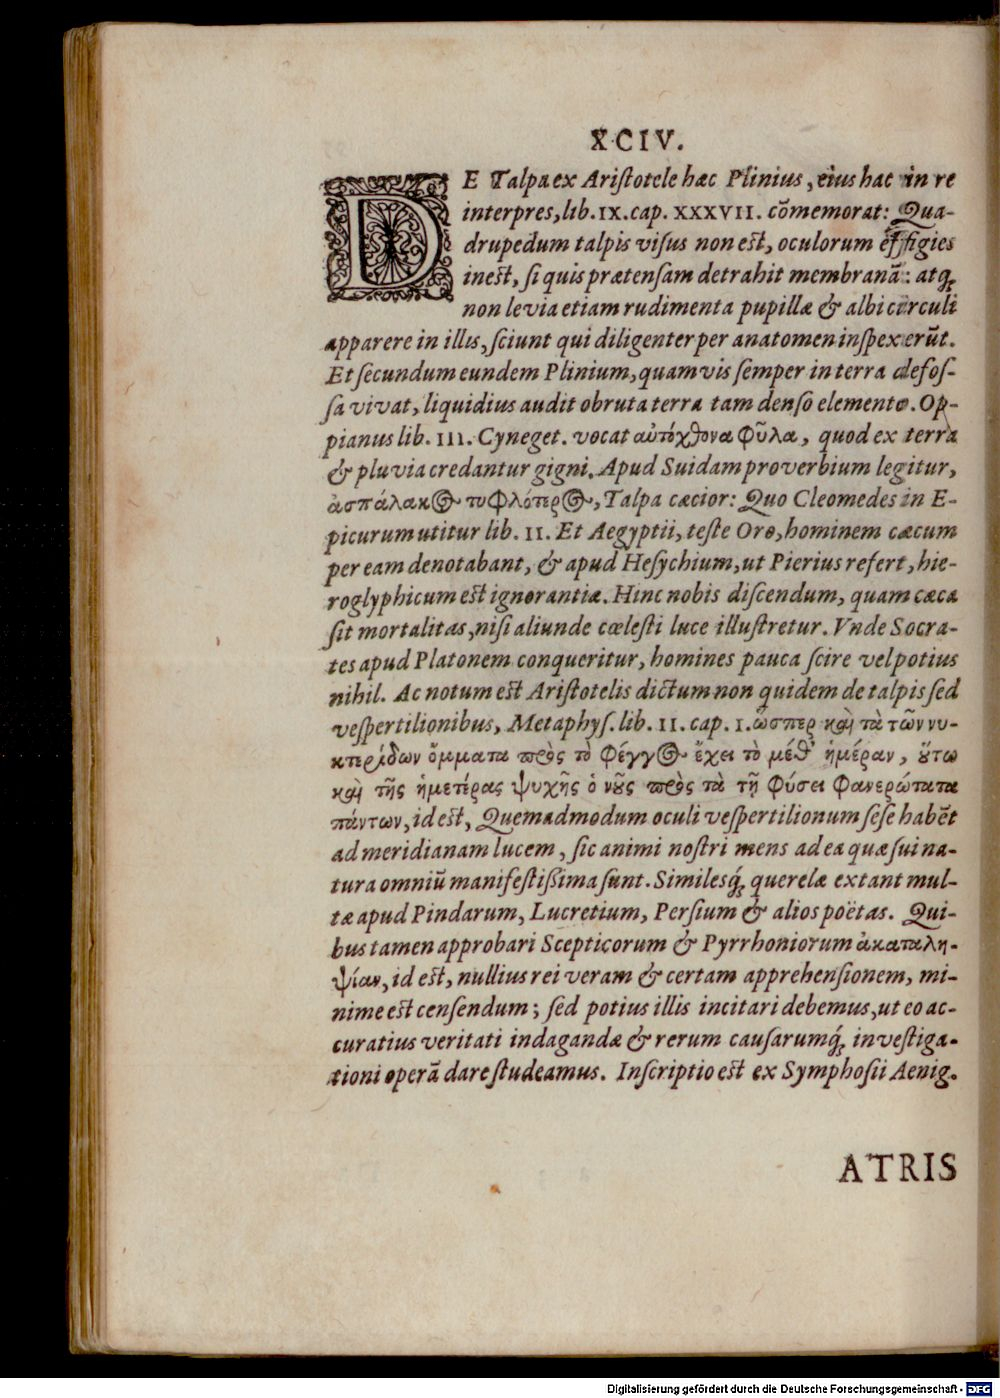 XCIV.
DE Talpa ex Aristotele hæc Plinius, eius hac in re
interpres, lib. IX. cap. XXXVII. cōmemorat: Qua-
drupedum talpis visus non est, oculorum effigies
inest, si quis prætensam detrahit membranā: atq́;
non levia etiam rudimenta pupillæ & albi circuli
apparere in illis, sciunt qui diligenter per anatomen inspexerūt.
Et secundum eundem Plinium, quamvis semper in terra defos-
sa vivat, liquidius audit obruta terra tam denso elemento. Op-
pianus lib. III. Cyneget. vocat αὐτόχθονα φῦλα, quod ex terra
& pluvia credantur gigni. Apud Suidam proverbium legitur,
ἀσπάλακος τυφλότερος, Talpa cæcior: Quo Cleomedes in E-
picurum utitur lib. II. Et Aegyptii, teste Oro, hominem cæcum
per eam denotabant, & apud Hesychium, ut Pierius refert, hie-
roglyphicum est ignorantiæ. Hinc nobis discendum, quam cæca
sit mortalitas, nisi aliunde cœlesti luce illustretur. Vnde Socra-
tes apud Platonem conqueritur, homines pauca scire vel potius
nihil. Ac notum est Aristotelis dictum non quidem de talpis sed
vespertilionibus, Metaphys. lib. II. cap. I. ὥσπερ καὶ τὰ τῶν νυ-
κτερίδων ὄμματα πρὸς τὸ φέγγος ἔχει τὸ μέθ' ἡμέραν, ὕτω
καὶ τῆς ἡμετέρας ψυχῆς ὁ νοῦς πρὸς τὰ τῇ φύσει φανερώτατα
πάντων, id est, Quemadmodum oculi vespertilionum sese habēt
ad meridianam lucem, sic animi nostri mens ad ea quæ sui na-
tura omniū manifestißima sunt. Similesq́; querelæ extant mul-
tæ apud Pindarum, Lucretium, Persium & alios poëtas. Qui-
bus tamen approbari Scepticorum & Pyrrhoniorum ἀκαταλη-
ψίαν, id est, nullius rei veram & certam apprehensionem, mi-
nime est censendum; sed potius illis incitari debemus, ut eo ac-
curatius veritati indagandæ & rerum causarumq́; investiga-
tioni operā dare studeamus. Inscriptio est ex Symphosii Aenig.
ATRIS
Digitalisierung gefördert durch die Deutsche Forschungsgemeinschaft - DFG